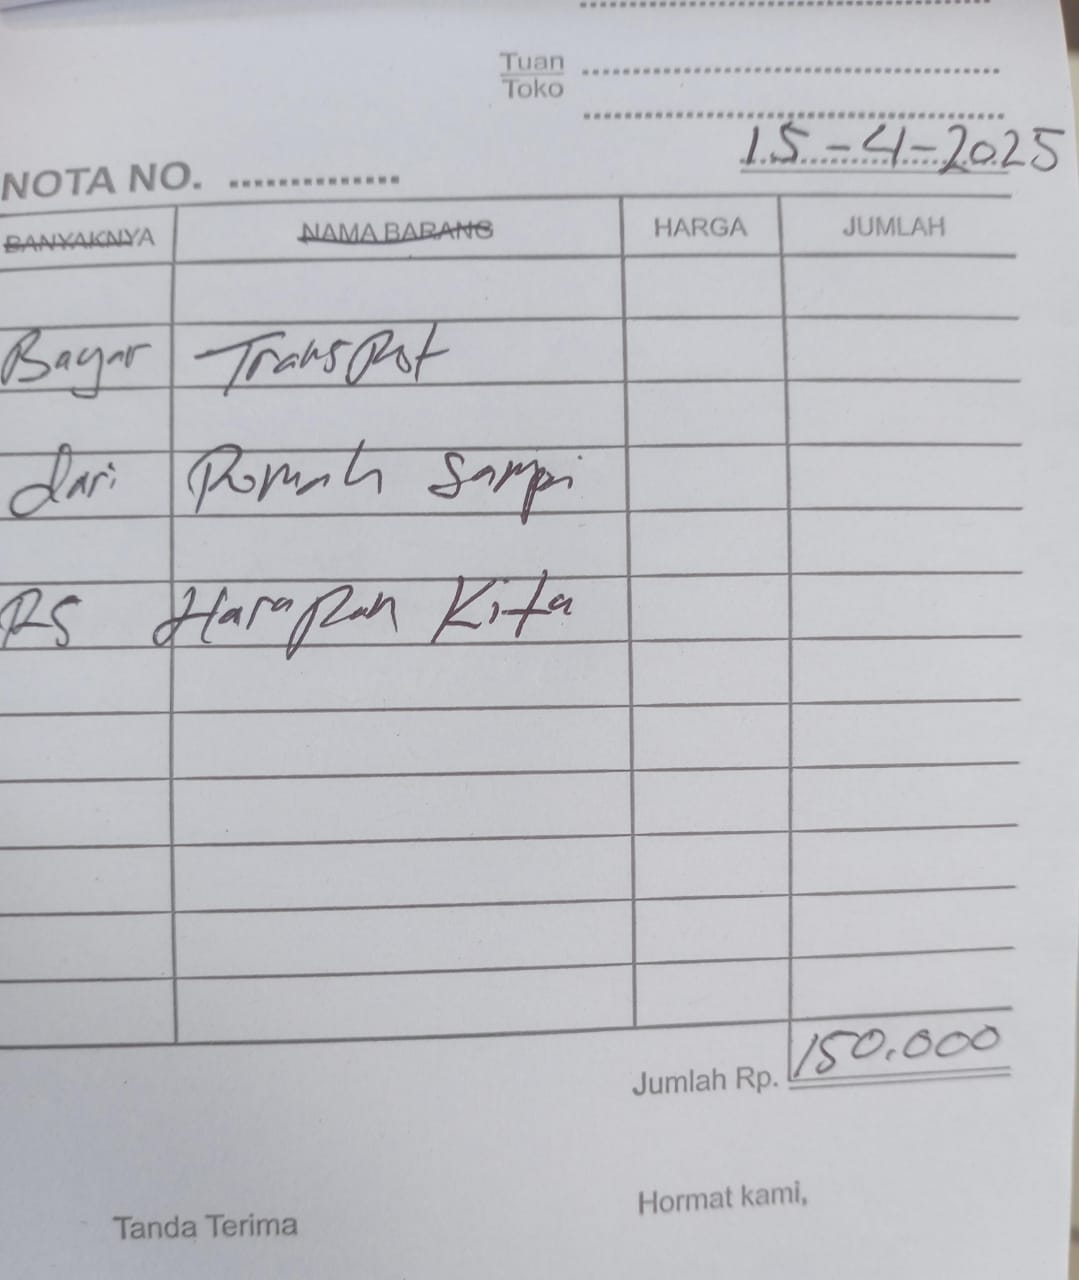 Tuan
Toko
15-4-2025
NOTA NO.
BANYAKNYA NAMA BARANG HARGA JUMLAH
Bayar Transpot
dari Romah Sampi
RS Harapan Kita
Jumlah Rp. 150.000
Tanda Terima Hormat kami,